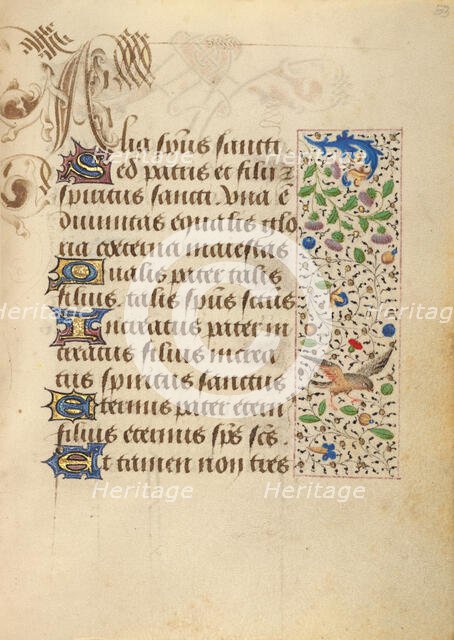 53
Alia sp̄us sancti
Sed patris et filii ⁊
spiritus sancti. vna ē
diuinitas equalis glo
ria coeterna maiestas
Qualis pater talis
filius. talis sp̄us sc̄tus
Increatus pater in
creatus filius increa
tus spiritus sanctus
Eternus pater etern
filius eternus sp̄s sc̄s.
Et tamen non tres
Heritage
Heritage
Heritage
Heritage
Heritage
Heritage
Heritage